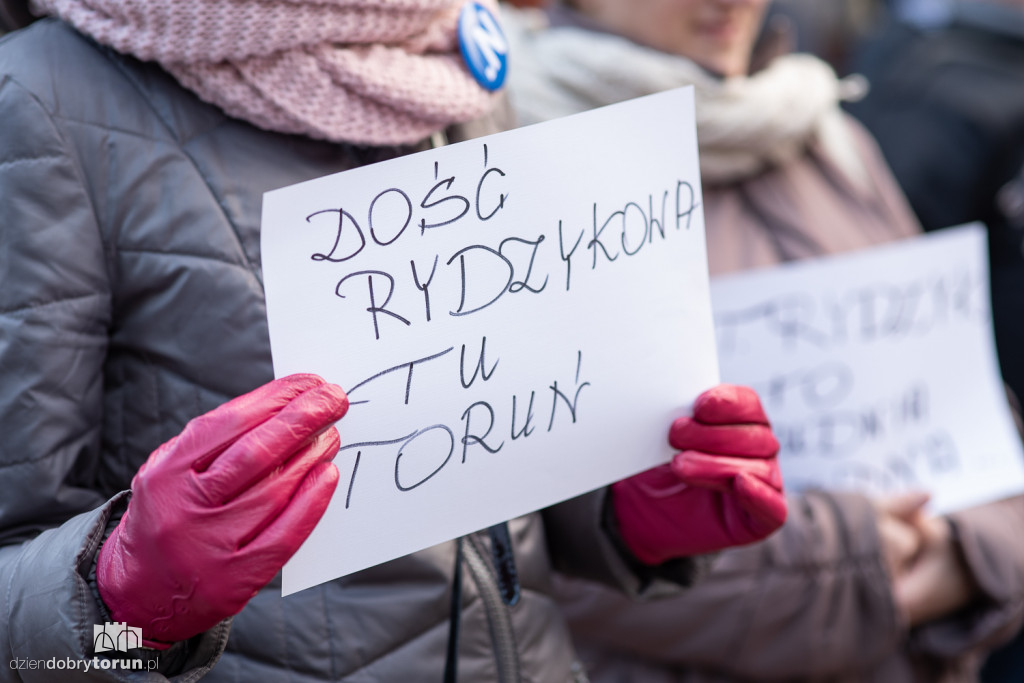 DOŚĆ
RYDZYKOWA
TU
TORUŃ
TO
dziendobrytorun.pl